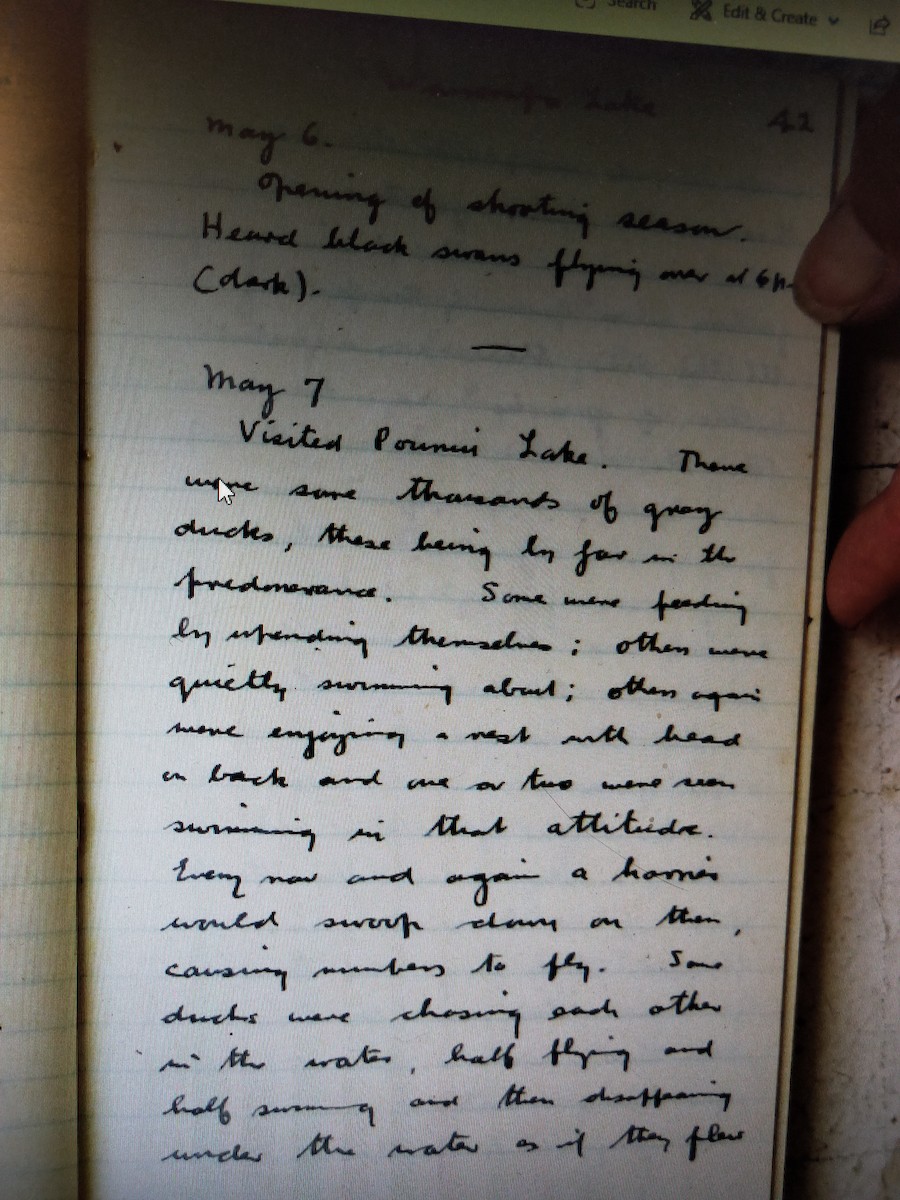 Search Edit & Create
Lake 42
May 6.
Opening of shooting season.
Heard black swans flying over at 6 p.
(dark).
May 7
Visited Lake. There
were some thousands of grey
ducks, these being by far in the
predominance. Some were feeding
by upending themselves; others were
quietly swimming about; others again
were enjoying a rest with head
on back and one or two were seen
swimming in that attitude.
Every now and again a harrier
would swoop down on them,
causing numbers to fly. Some
ducks were chasing each other
in the water, half flying and
half swimming and then disappearing
under the water as if they flew